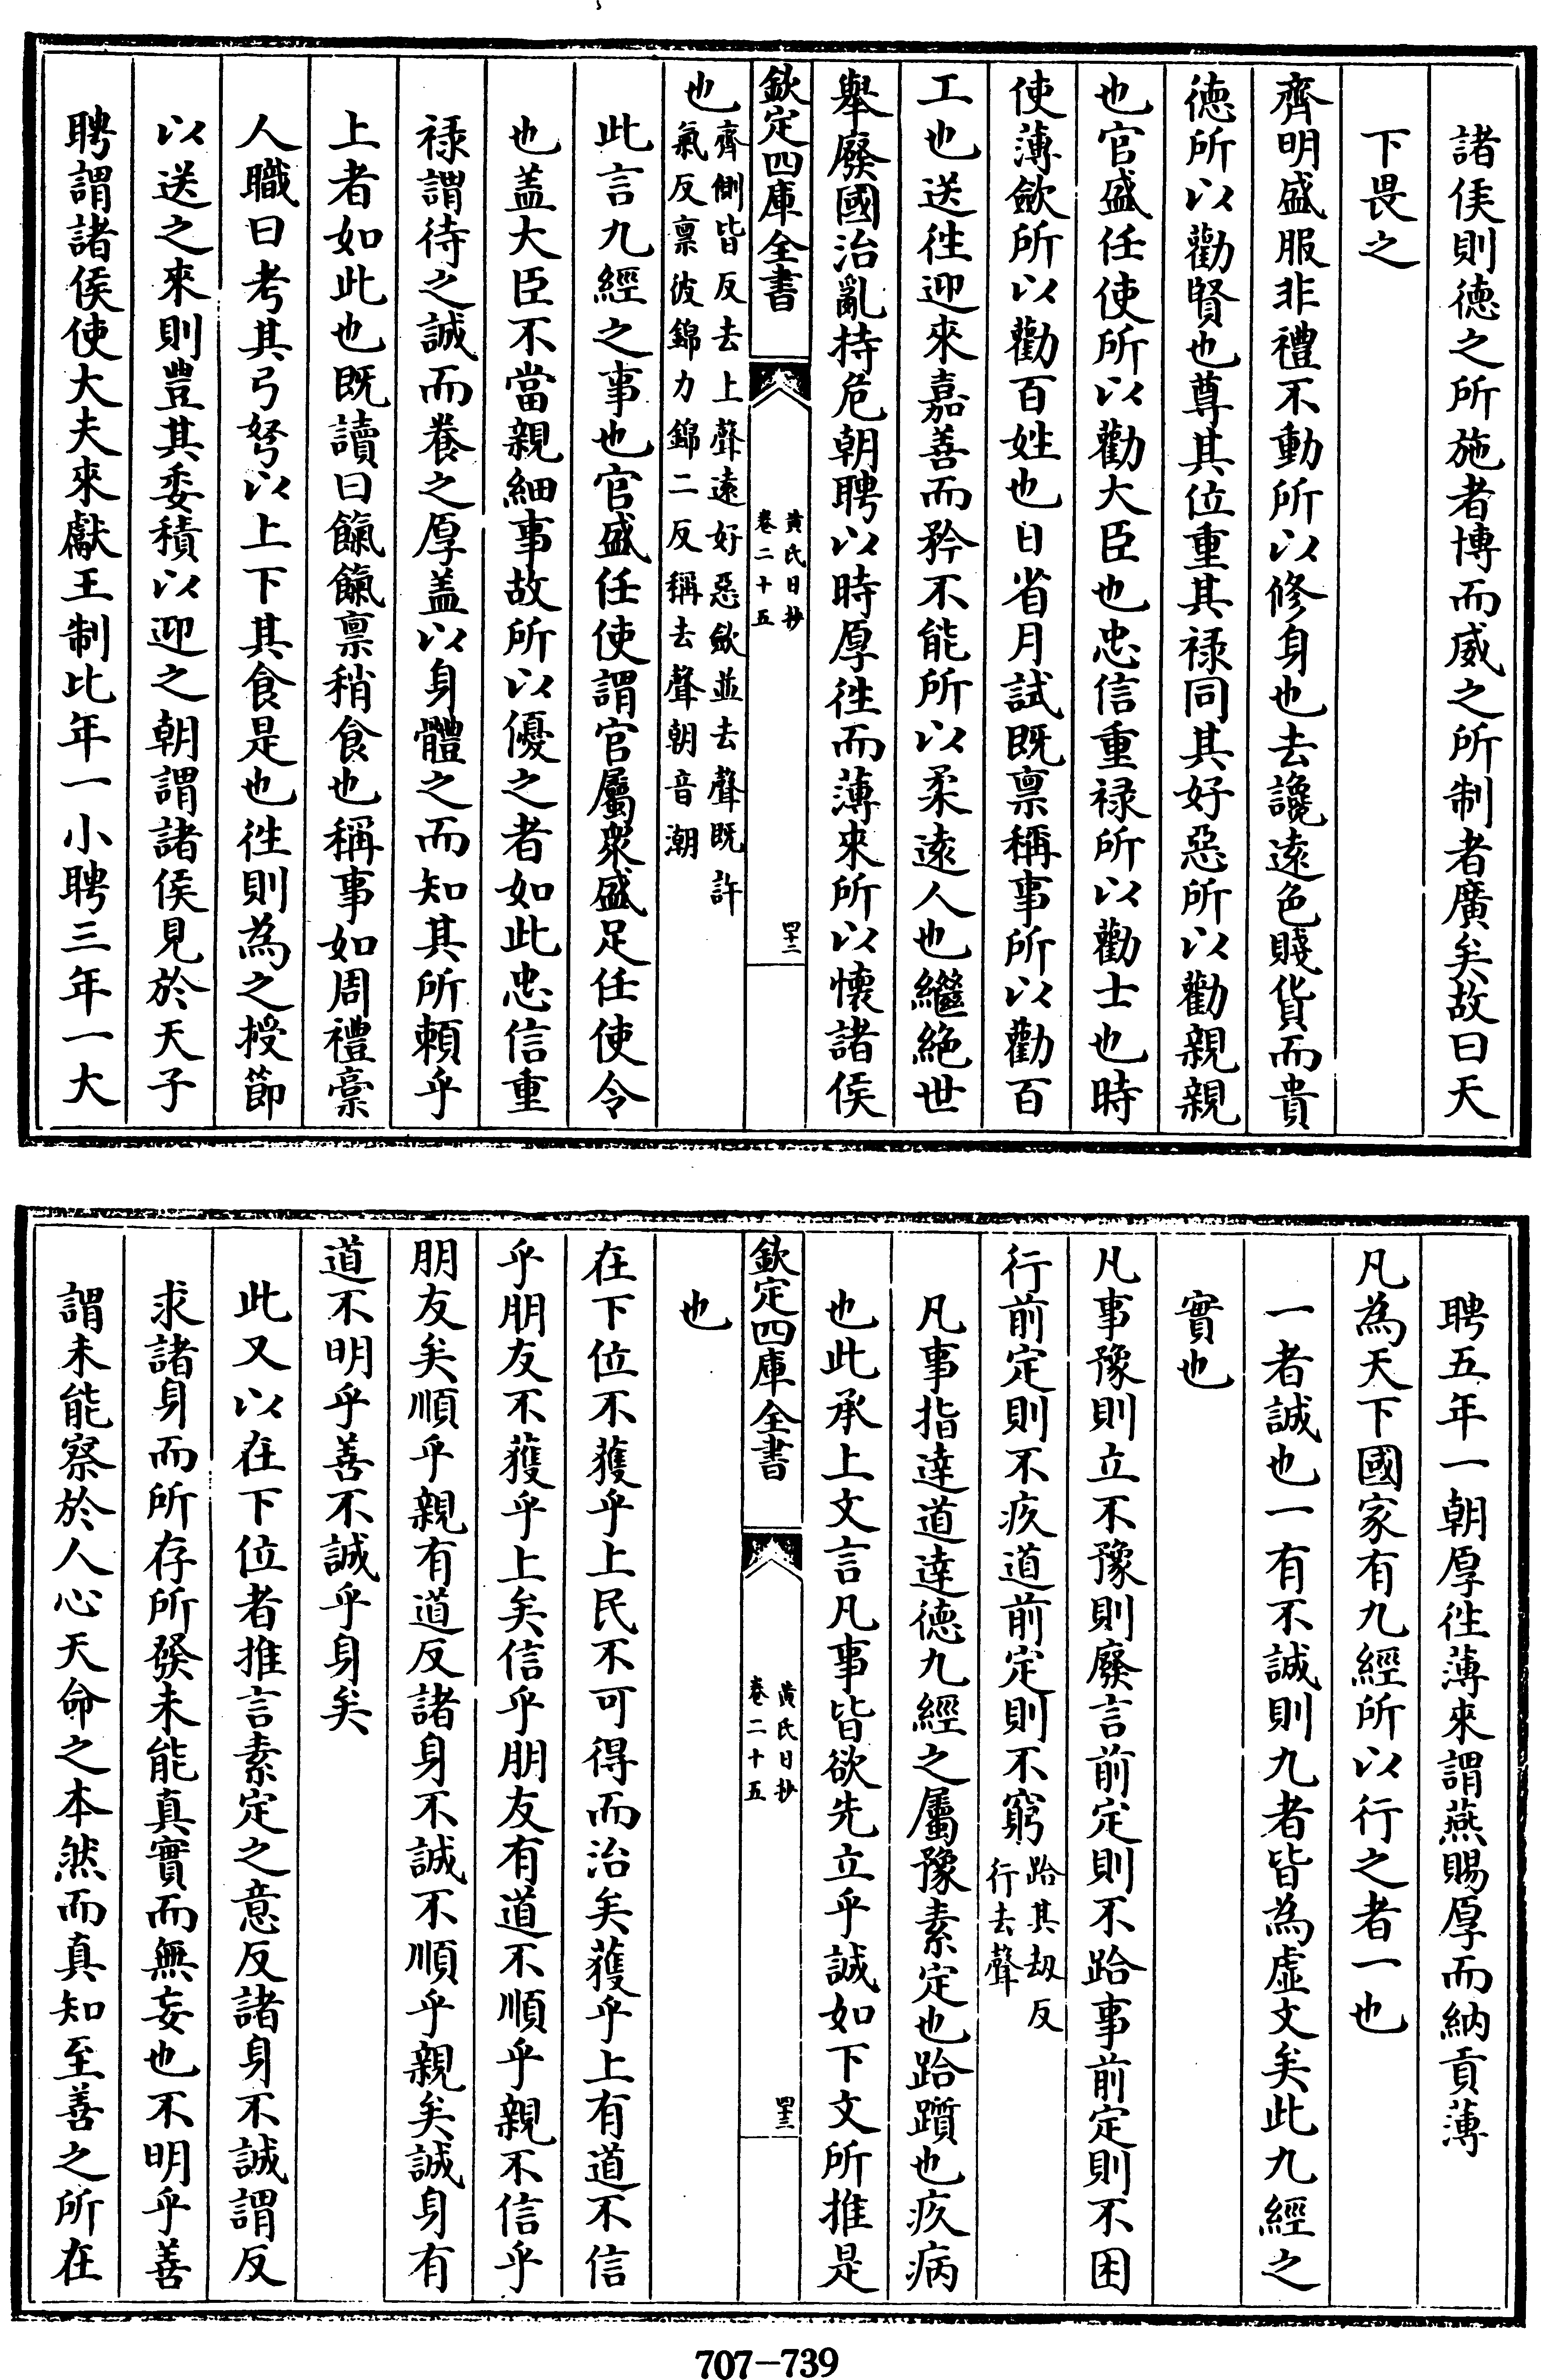 諸侯則徳之所施者博而威之所制者廣矣故曰天
下畏之
齊明盛服非禮不動所以修身也去讒遠色賤貨而貴
徳所以勸賢也尊其位重其禄同其好惡所以勸親親
也官盛任使所以勸大臣也忠信重禄所以勸士也時
使薄斂所以勸百姓也日省月試既禀稱事所以勸百
工也送徃迎來嘉善而矜不能所以柔遠人也繼絶世
舉廢國治亂持危朝聘以時厚徃而薄來所以懷諸侯
欽定四庫全書
黄氏日抄
卷二十五
四十二
也
齊側皆反去上聲遠好惡斂並去聲既許
氣反禀彼錦力錦二反稱去聲朝音潮
此言九經之事也官盛任使謂官屬衆盛足任使令
也盖大臣不當親細事故所以優之者如此忠信重
禄謂待之誠而養之厚盖以身體之而知其所頼乎
上者如此也既讀曰餼餼禀稍食也稱事如周禮稾
人職曰考其弓弩以上下其食是也徃則為之授節
以送之來則豐其委積以迎之朝謂諸侯見於天子
聘謂諸侯使大夫來獻王制比年一小聘三年一大
聘五年一朝厚徃薄來謂燕賜厚而納貢薄
凡為天下國家有九經所以行之者一也
一者誠也一有不誠則九者皆為虚文矣此九經之
實也
凡事豫則立不豫則廢言前定則不跲事前定則不困
行前定則不疚道前定則不窮
跲其刼反
行去聲
凡事指達道達徳九經之屬豫素定也跲躓也疚病
也此承上文言凡事皆欲先立乎誠如下文所推是
欽定四庫全書
黄氏日抄
卷二十五
四十三
也
在下位不獲乎上民不可得而治矣獲乎上有道不信
乎朋友不獲乎上矣信乎朋友有道不順乎親不信乎
朋友矣順乎親有道反諸身不誠不順乎親矣誠身有
道不明乎善不誠乎身矣
此又以在下位者推言素定之意反諸身不誠謂反
求諸身而所存所發未能真實而無妄也不明乎善
謂未能察於人心天命之本然而真知至善之所在
707-739